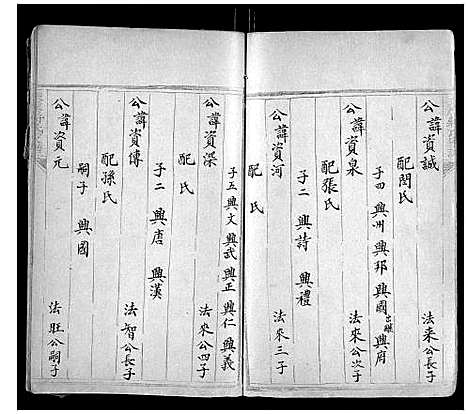 公諱資誠 法来公長子
配閔氏
子四 興州 興邦 興國出継 興府
公諱資泉 法來公次子
配張氏
子二 興詩 興禮
公諱資河 法來三子
配 氏
子五 興文 興武 興正 興仁 興義
公諱資深 法來公四子
配 氏
公諱資傳 法智公長子
子二 興唐 興漢
配孫氏
嗣子 興國
公諱資元 法旺公嗣子